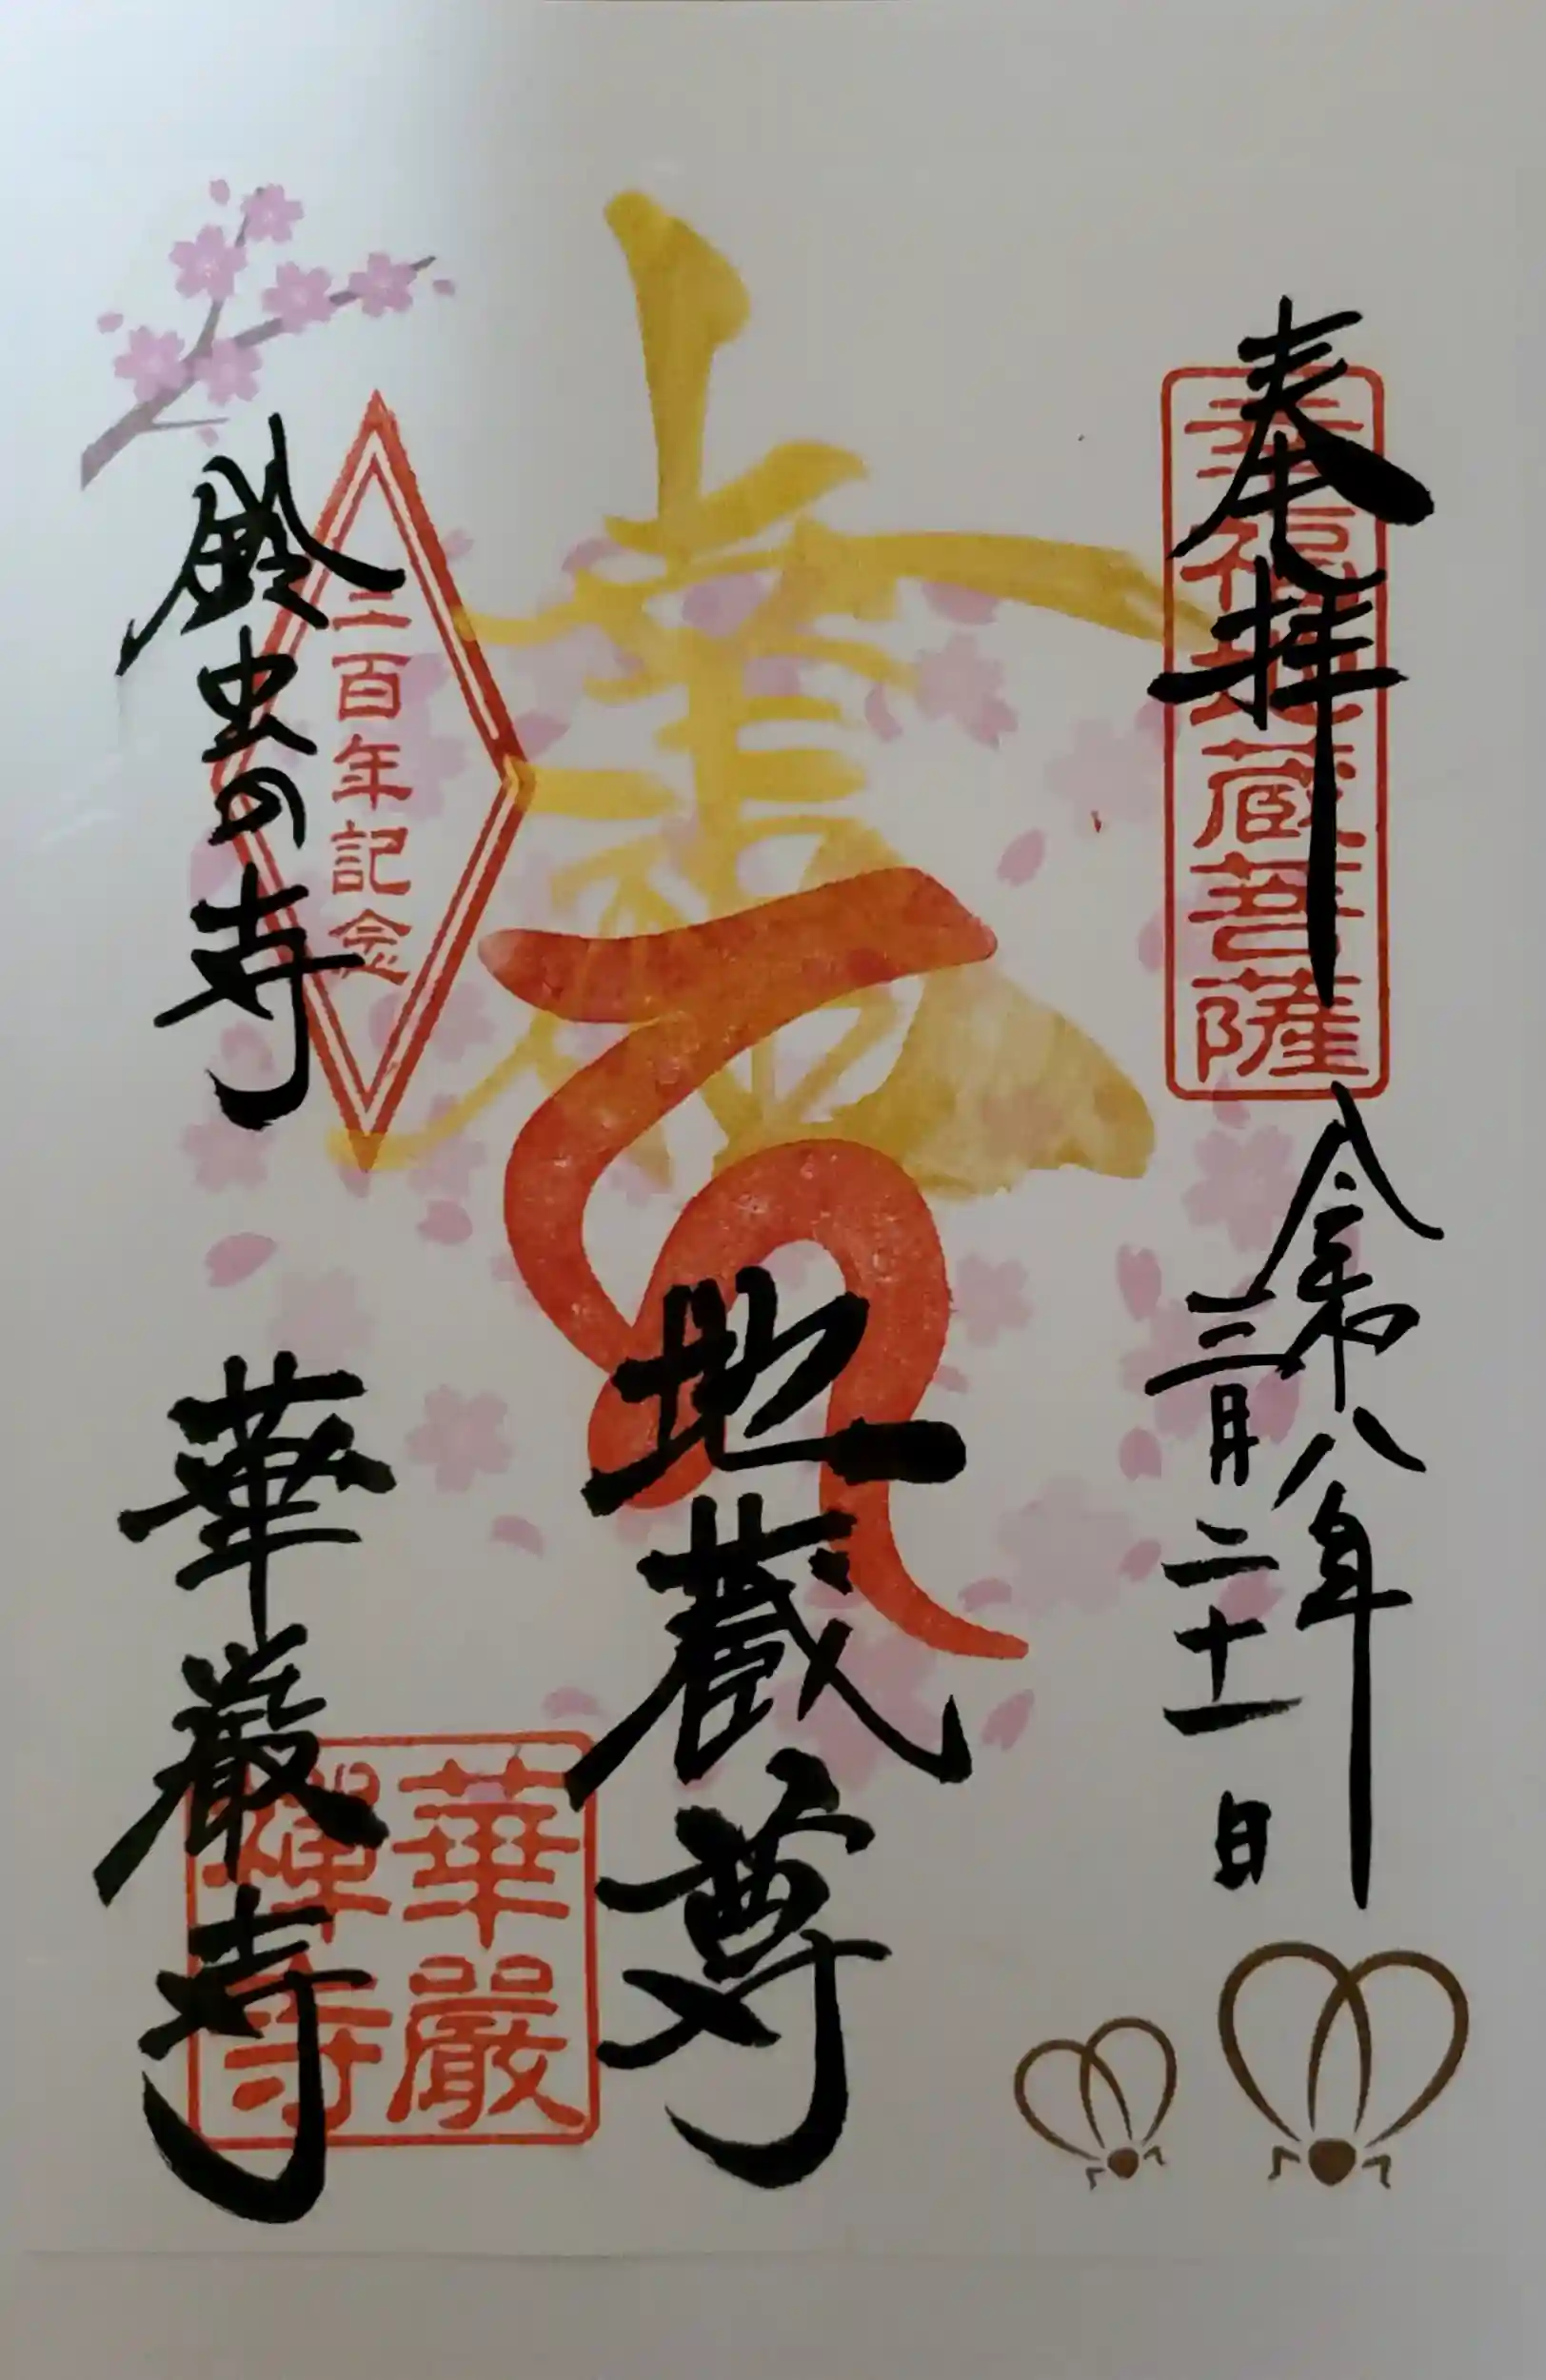 奉拝
幸福地蔵菩薩
令和八年
三月二十一日
寿
地蔵尊
三百年記念
鈴虫の寺
華厳寺
華嚴
禅寺